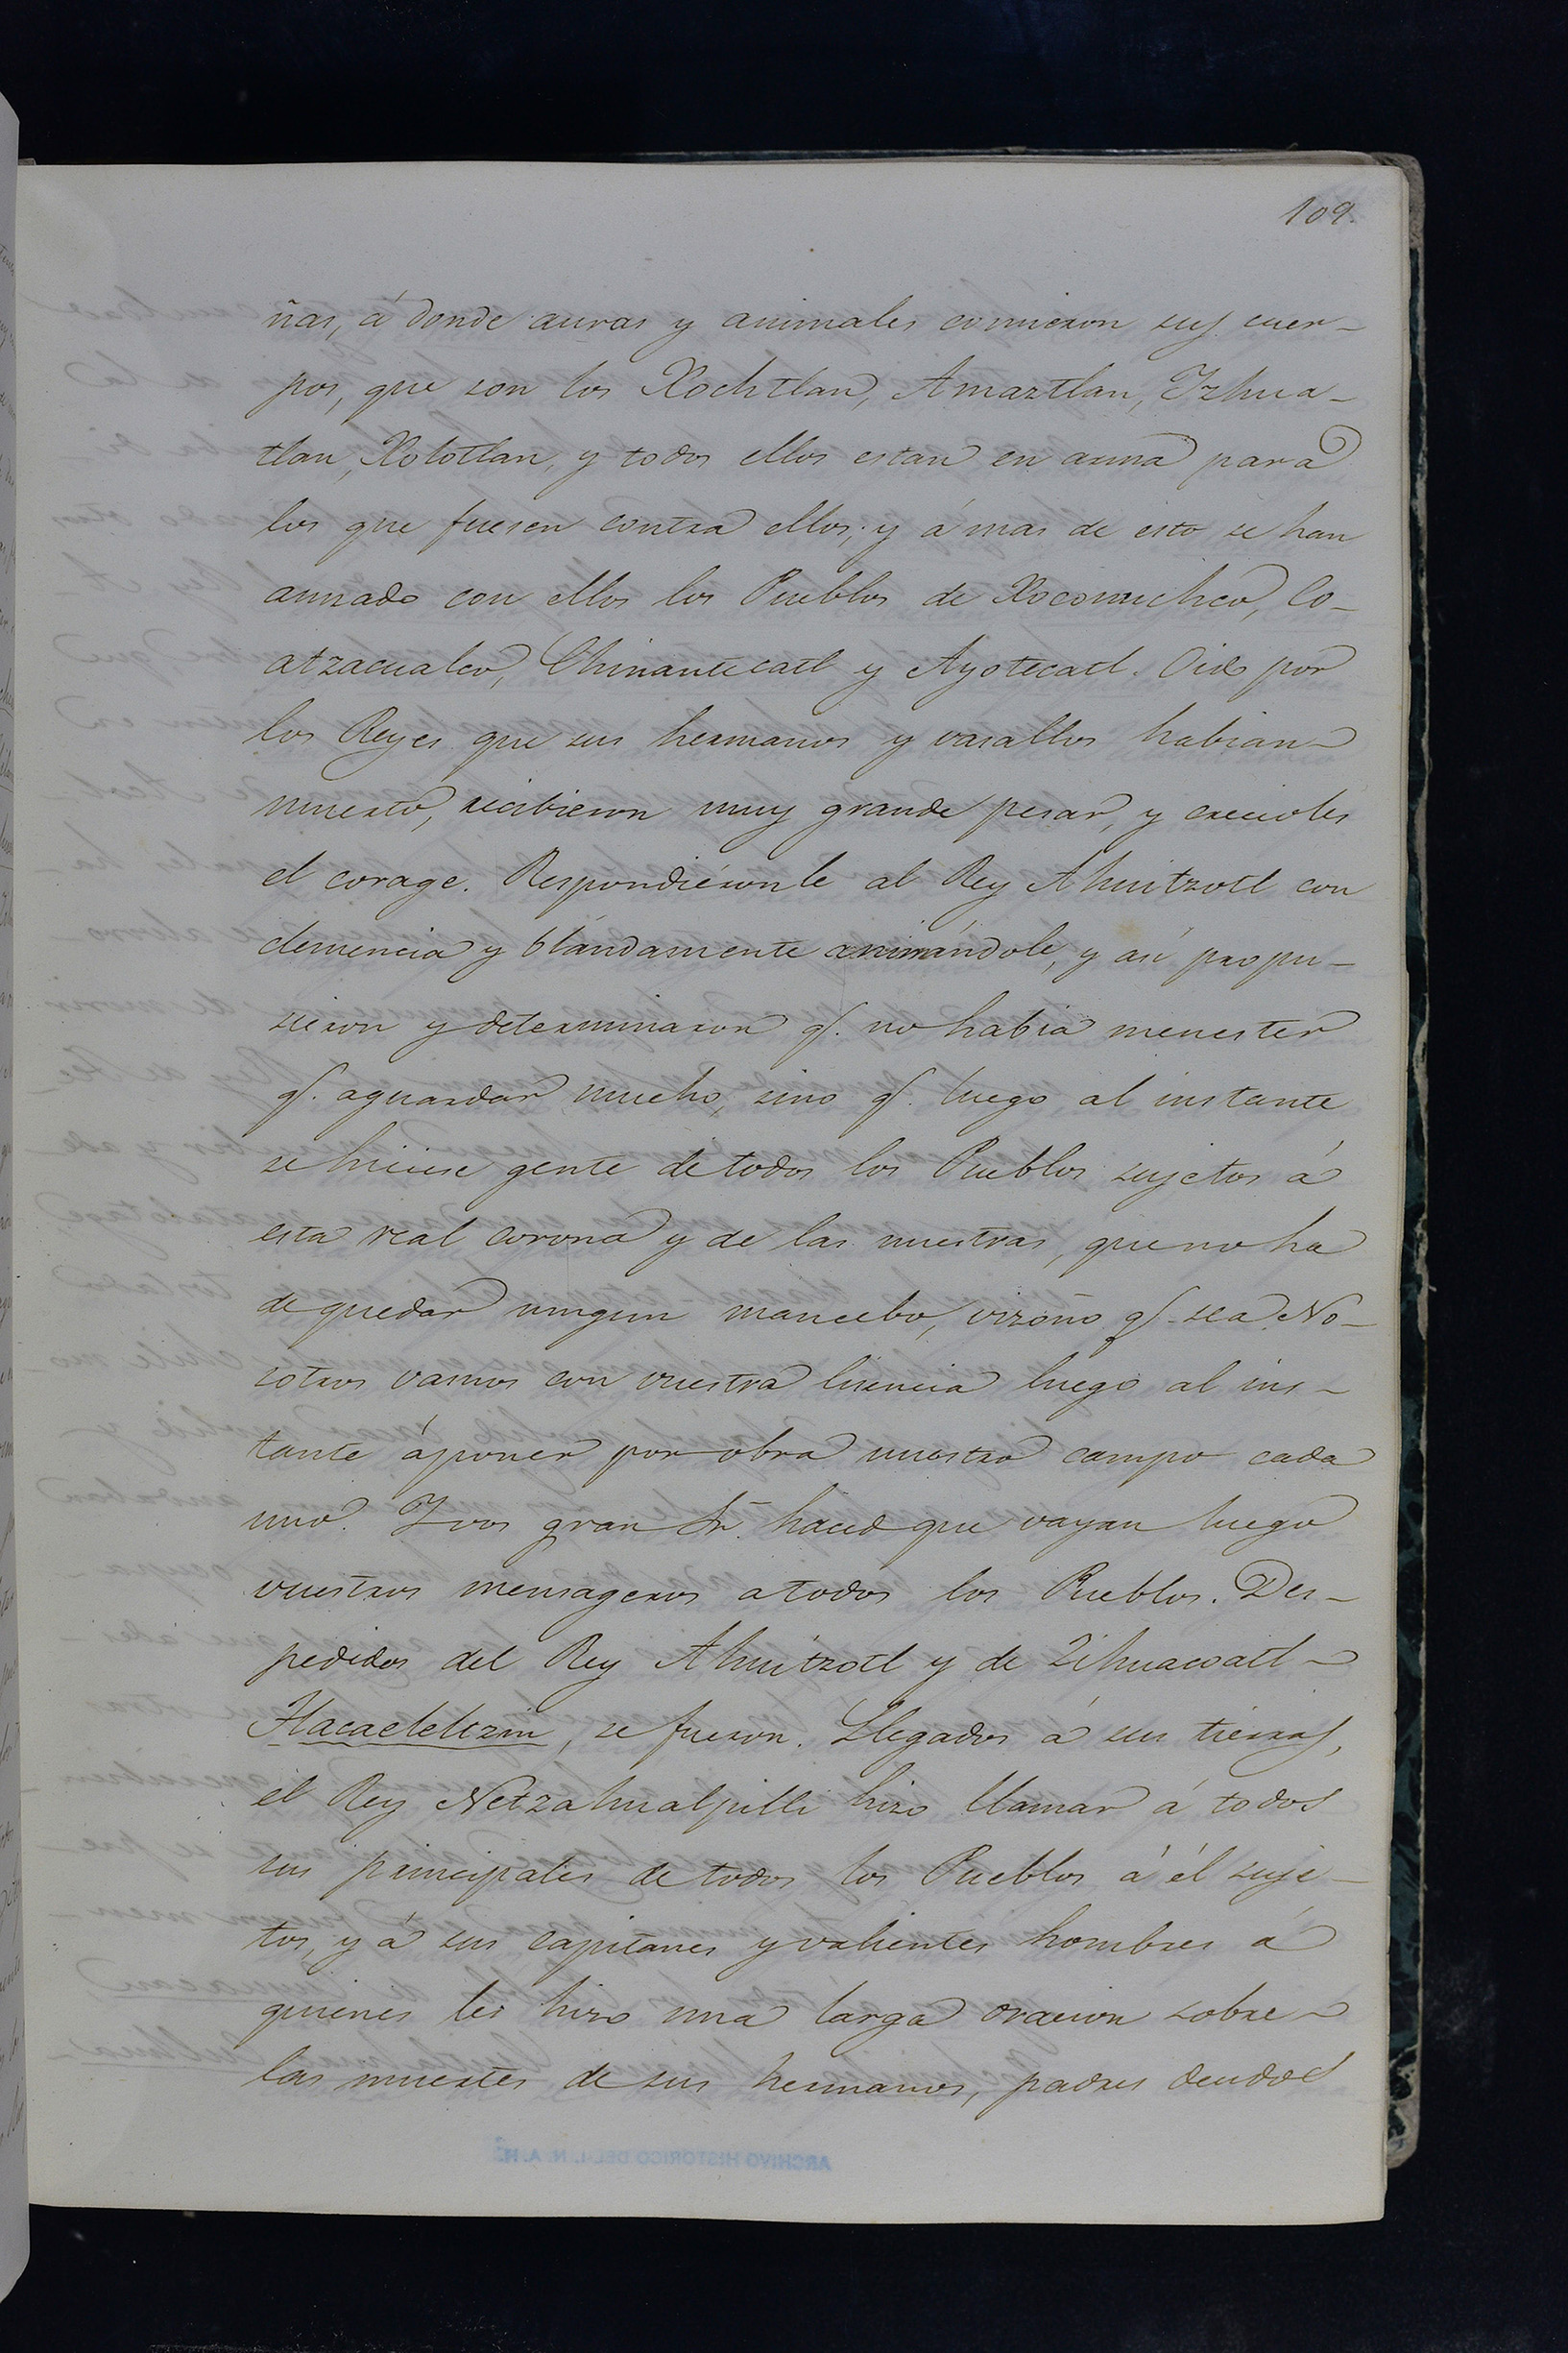 109.
ñas, á donde auras y animales comieron sus cuer-
pos, que son los Xochtlan, Amaztlan, Izhua-
tlan, Xolotlan, y todos ellos estan en arma para
los que fuesen contra ellos; y á mas de esto se han
aunado con ellos los Pueblos de Xoconuchco, Co-
atzacualco, Chinantecatl y Ayotecatl. Oido por
los Reyes que sus hermanos y vasallos habian
muerto, recibieron muy grande pesar, y crecioles
el corage. Respondiéronle al Rey Ahuitzotl con
clemencia y blándamente animándole, y así propu-
sieron y determinaron q. no habia menester
q. aguardar mucho, sino q. luego al instante
se hiciese gente de todos los Pueblos sujetos á
esta real corona y de las nuestras, que no ha
de quedar ningun mancebo, vizoño q. sea. No-
sotros vamos con vuestra licencia luego al ins-
tante á poner por obra nuestro campo cada
uno. Y vos gran Sr. haced que vayan luego
vuestros mensageros a todos los Pueblos. Des-
pedidos del Rey Ahuitzotl y de Zihuacoatl
Tlacaeleltzin, se fueron. Llegados á sus tierras,
el Rey Netzahualpilli hizo llamar á todos
sus principales de todos los Pueblos á él suje-
tos, y á sus capitanes y valientes hombres á
quienes les hizo una larga oracion sobre
las muertes de sus hermanos, padres deudos
ARCHIVO HISTORICO DEL I. N. A. H.